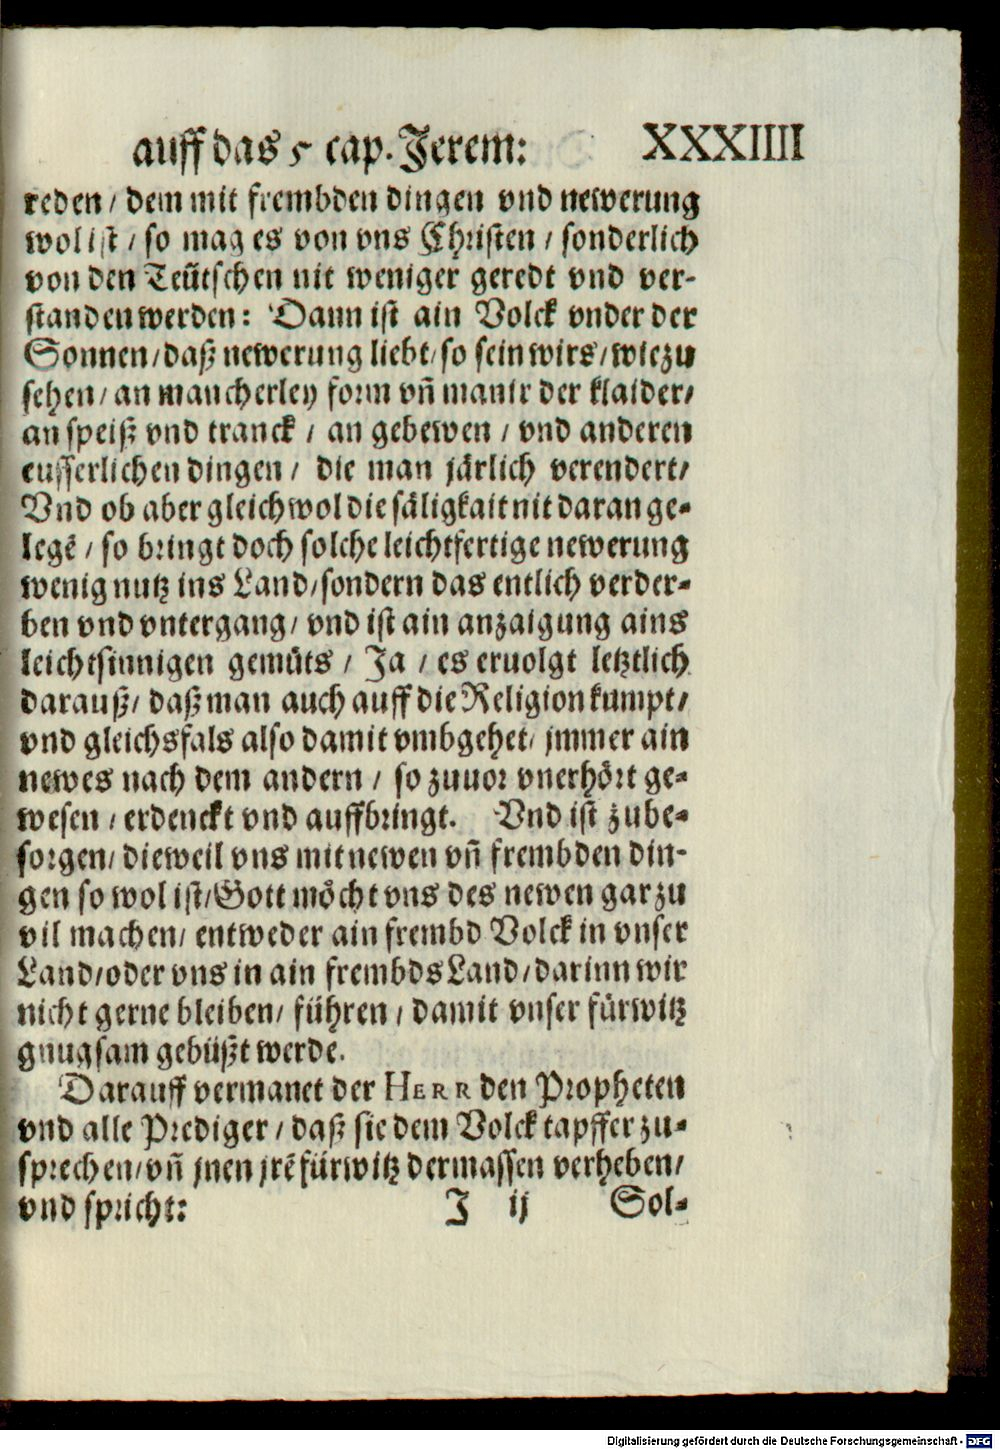 auff das 5 cap. Jerem: XXXIIII
reden / dem mit frembden dingen vnd newerung
wol ist / so mag es von vns Christen / sonderlich
von den Teütschen nit weniger geredt vnd ver-
standen werden: Dann ist ain Volck vnder der
Sonnen / daß newerung liebt / so sein wirs / wie zu
sehen / an mancherley form vñ manir der klaider /
an speiß vnd tranck / an gebewen / vnd anderen
eusserlichen dingen / die man järlich verendert /
Vnd ob aber gleichwol die säligkait nit daran ge-
legẽ / so bringt doch solche leichtfertige newerung
wenig nutz ins Land / sondern das entlich verder-
ben vnd vntergang / vnd ist ain anzaigung ains
leichtsinnigen gemüts / Ja / es eruolgt letztlich
darauß / daß man auch auff die Religion kumpt /
vnd gleichsfals also damit vmbgehet / jmmer ain
newes nach dem andern / so zuuor vnerhört ge-
wesen / erdenckt vnd auffbringt. Vnd ist zube-
sorgen / dieweil vns mit newen vñ frembden din-
gen so wol ist / Gott möcht vns des newen gar zu
vil machen / entweder ain frembd Volck in vnser
Land / oder vns in ain frembds Land / darinn wir
nicht gerne bleiben / führen / damit vnser fürwitz
gnugsam gebüßt werde.
Darauff vermanet der HERR den Propheten
vnd alle Prediger / daß sie dem Volck tapffer zu-
sprechen / vñ jnen jrẽ fürwitz dermassen verheben /
vnd spricht: J ij Sol-
Digitalisierung gefördert durch die Deutsche Forschungsgemeinschaft - DFG